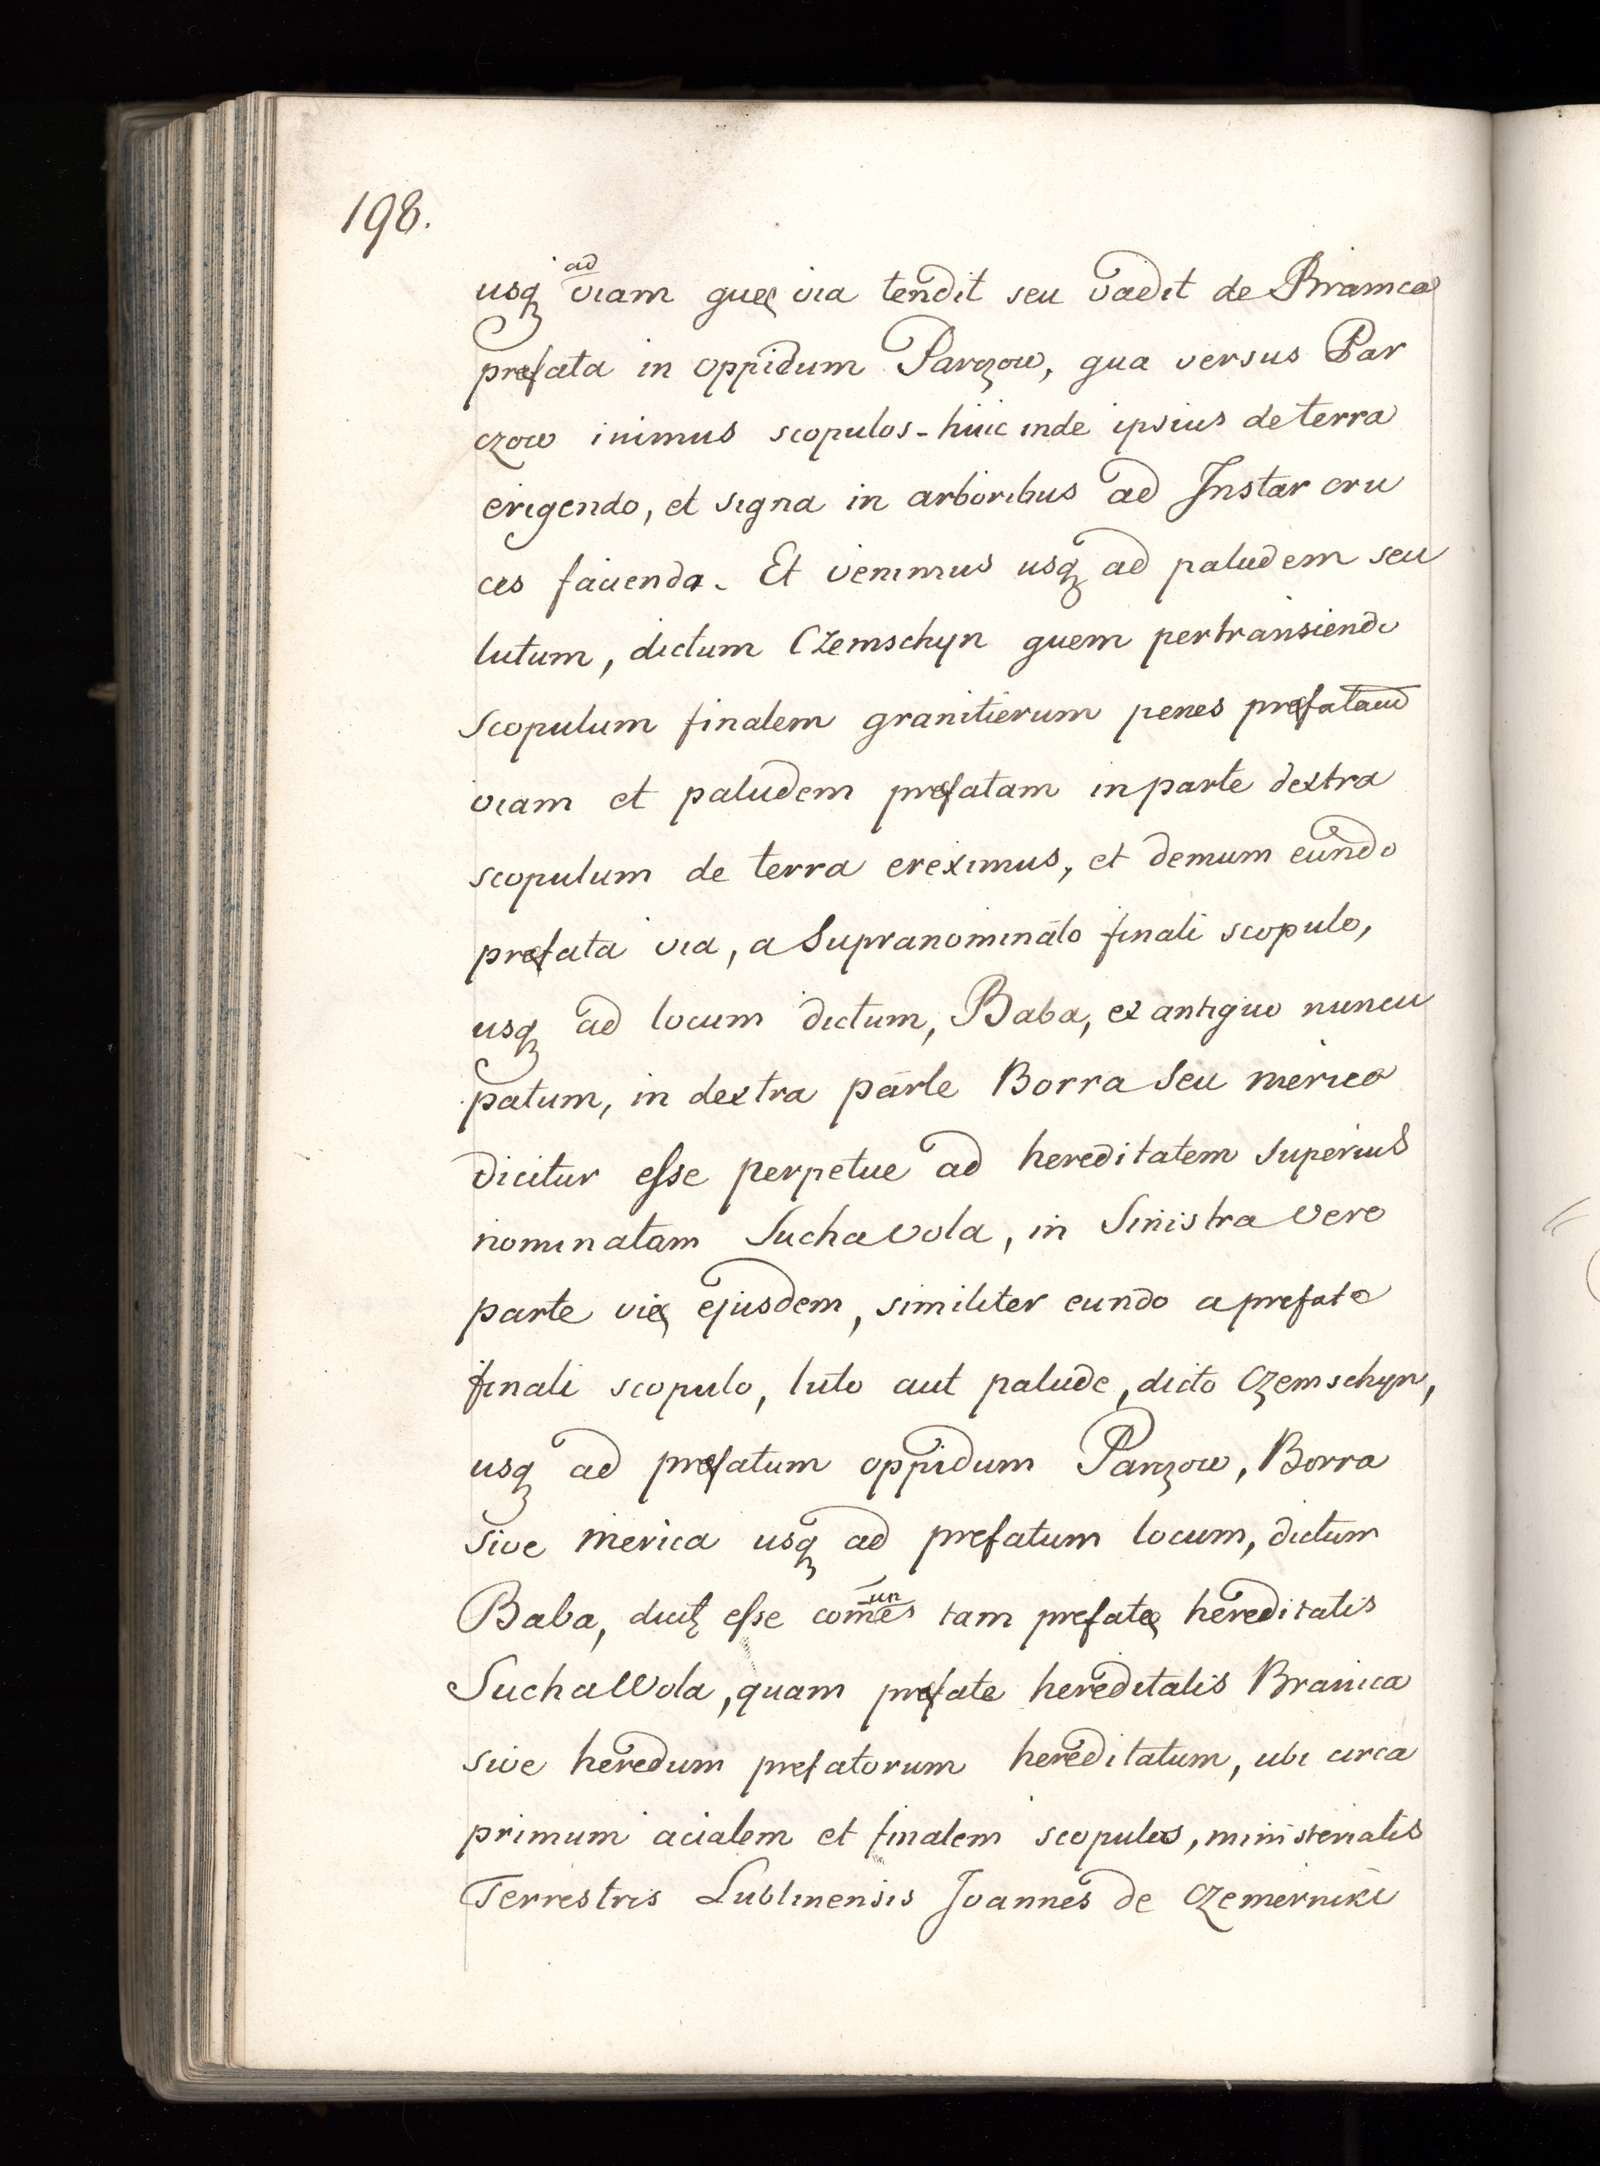 198.
usq ad viam quę via tendit seu vadit de Branica
prefata in oppidum Parczow, qua versus Par
czow inimus scopulos - huic inde ipsius de terra
erigendo, et signa in arboribus ad Instar cru
ces faciendo. Et venimus usq ad paludem seu
lutum, dictum Czemschyn quem pertransiendo
scopulum finalem granitierum penes præfatam
viam et paludem præfatam in parte dextra
scopulum de terra ereximus, et demum eundo
præfata via, a Supranominato finali scopulo,
usq ad locum dictum, Baba, ex antiquo nuncu
patum, in dextra parte Borra Seu merica
dicitur esse perpetue ad hereditatem Superius
nominatam SuchaVola, in Sinistra vero
parte vię ejusdem, similiter eundo a prefato
finali scopulo, luto aut palude, dicto Czemschyn,
usq ad præfatum oppidum Parczow, Borra
sive merica usq ad prefatum locum, dictum
Baba, dicit esse comunes tam prefatę hereditatis
SuchaWola, quam præfate hereditatis Branica
sive heredum prefatorum hereditatum, ubi circa
primum acialem et finalem scopulos, ministerialis
Terrestris Lublinensis Joannes de Czemerniki